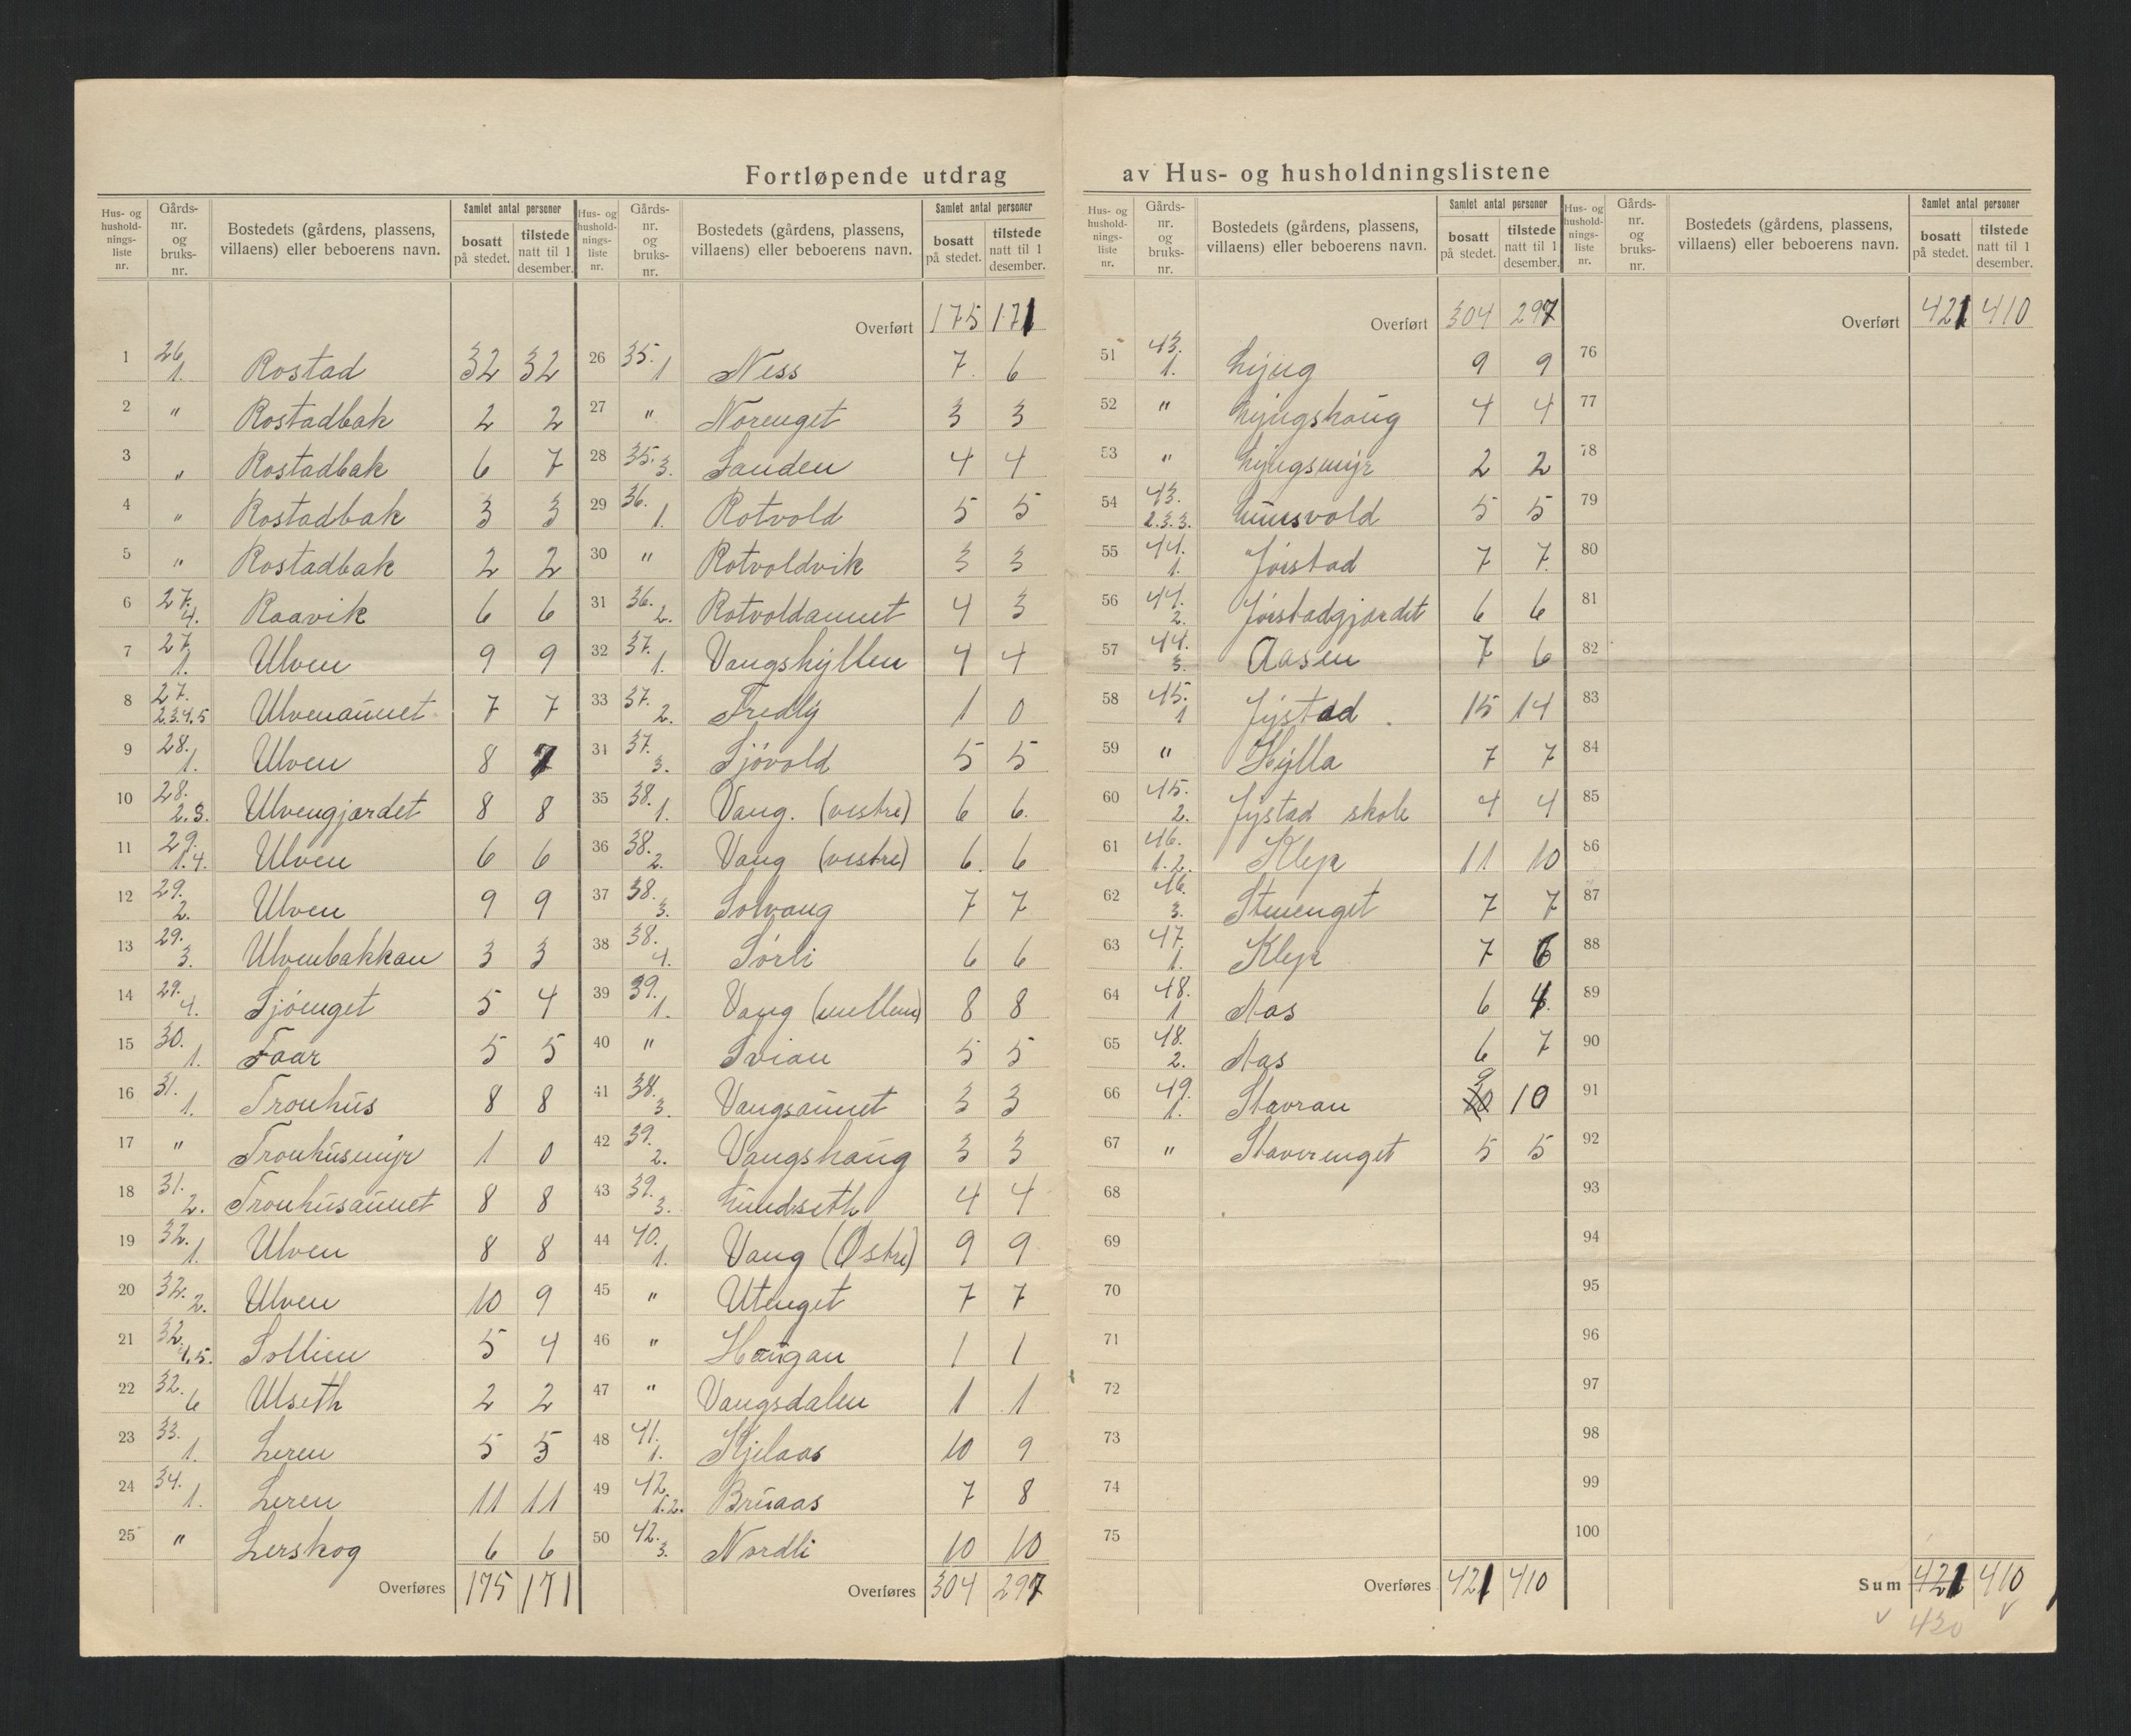 Fortløpende utdrag av Hus- og husholdningslistene
Hus- og hushold-nings-liste nr. | Gårds-nr. og bruks-nr. | Bostedets (gårdens, plassens, villaens) eller beboerens navn. | Samlet antal personer | bosatt på stedet. | tilstede natt til 1 desember.
1 26. 1. Rostad 32 32
2 " Rostadbak 2 2
3 " Rostadbak 6 7
4 " Rostadbak 3 3
5 " Rostadbak 2 2
6 27. 4. Raavik 6 6
7 27. 1. Ulven 9 9
8 27. 2.3.4.5 Ulvenaunet 7 7
9 28. 1. Ulven 8 7
10 28. 2.3. Ulvengjærdet 8 8
11 29. 1.4. Ulven 6 6
12 29. 2. Ulven 9 9
13 29. 3. Ulvenbakkan 3 3
14 29. 4. Sjöenget 5 4
15 30. 1. Faar 5 5
16 31. 1. Tronhus 8 8
17 " Tronhusmyr 1 0
18 31. 2. Tronhusaunet 8 8
19 32. 1. Ulven 8 8
20 32. 2. Ulven 10 9
21 32. 4.5. Sollien 5 4
22 32. 6 Ulseth 2 2
23 33. 1. Leren 5 5
24 34. 1. Leren 11 11
25 " Lerskog 6 6
Overføres 175 171
Hus- og hushold-nings-liste nr. | Gårds-nr. og bruks-nr. | Bostedets (gårdens, plassens, villaens) eller beboerens navn. | Samlet antal personer | bosatt på stedet. | tilstede natt til 1 desember.
Overført 175 171
26 35. 1 Ness 7. 6
27 " Norenget 3 3
28 35. 3. Sanden 4 4
29 36. 1. Rotvold 5 5
30 " Rotvoldvik 3 3
31 36. 2. Rotvoldaunet 4 3
32 37. 1. Vangshyllen 4 4
33 37. 2. Fredly 1 0
34 37. 3. Sjövold 5 5
35 38. 1. Vang. (vestre) 6 6.
36 38. 2. Vang (vestre) 6. 6
37 38. 3. Solvang 7 7
38 38. 4. Sörli 6 6
39 39. 1. Vang (mellem) 8 8
40 " Svian 5 5
41 38. 3. Vangsaunet 3 3
42 39. 2. Vangshaug 3 3
43 39. 3. Lundseth 4 4
44 40. 1. Vang (Østre) 9 9
45 " Utenget 7 7
46 " Haugan 1 1
47 " Vangsdalen 1 1
48 41. 1. Kjelaas 10 9
49 42. 1.2. Bruaas 7 8
50 42. 3. Nordli 10 10
Overføres 304 297
Hus- og hushold-nings-liste nr. | Gårds-nr. og bruks-nr. | Bostedets (gårdens, plassens, villaens) eller beboerens navn. | Samlet antal personer | bosatt på stedet. | tilstede natt til 1 desember.
Overført 304 297
51 43. 1. Lyng 9 9
52 " Lyngshaug 4 4
53 " Lyngsmyr 2 2
54 43. 2.3.3. 5 5
55 44. 1. Jörstad 7 7.
56 44. 2. Jörstadgjærdet 6 6
57 44. 3. Aasen 7 6
58 45. 1 Jystad 15 14
59 " Hylla 7 7
60 45. 2. Jystad skole 4 4
61 46. 1.2. Klep 11 10
62 46. 3. Stenenget 7 7
63 47. 1. Klep 7 6
64 48. 1 Aas 6 4
65 48. 2. Aas 6 7
66 49. 1. Stavran 9 10
67 " Staverenget 5 5
68
69
70
71
72
73
74
75
Overføres 421 410
Hus- og hushold-nings-liste nr. | Gårds-nr. og bruks-nr. | Bostedets (gårdens, plassens, villaens) eller beboerens navn. | Samlet antal personer | bosatt på stedet. | tilstede natt til 1 desember.
Overført 421 410
76
77
78
79
80
81
82
83
84
85
86
87
88
89
90
91
92
93
94
95
96
97
98
99
100
Sum 421 410
420